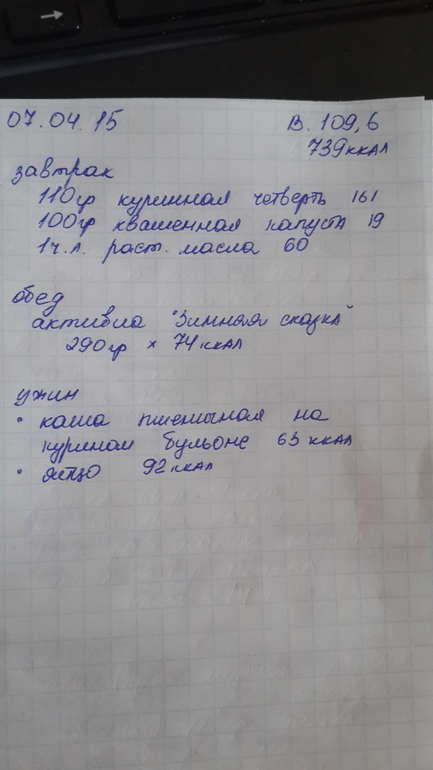 07.04.15 В. 109,6
739ккал
завтрак
110гр куриная четверть 161
100гр квашенная капуста 19
1ч.л. раст. масла 60
обед
активиа "Зимняя сказка"
290гр × 74ккал
ужин
• каша пшеничная на
курином бульоне 63 ккал
• яйцо 92ккал